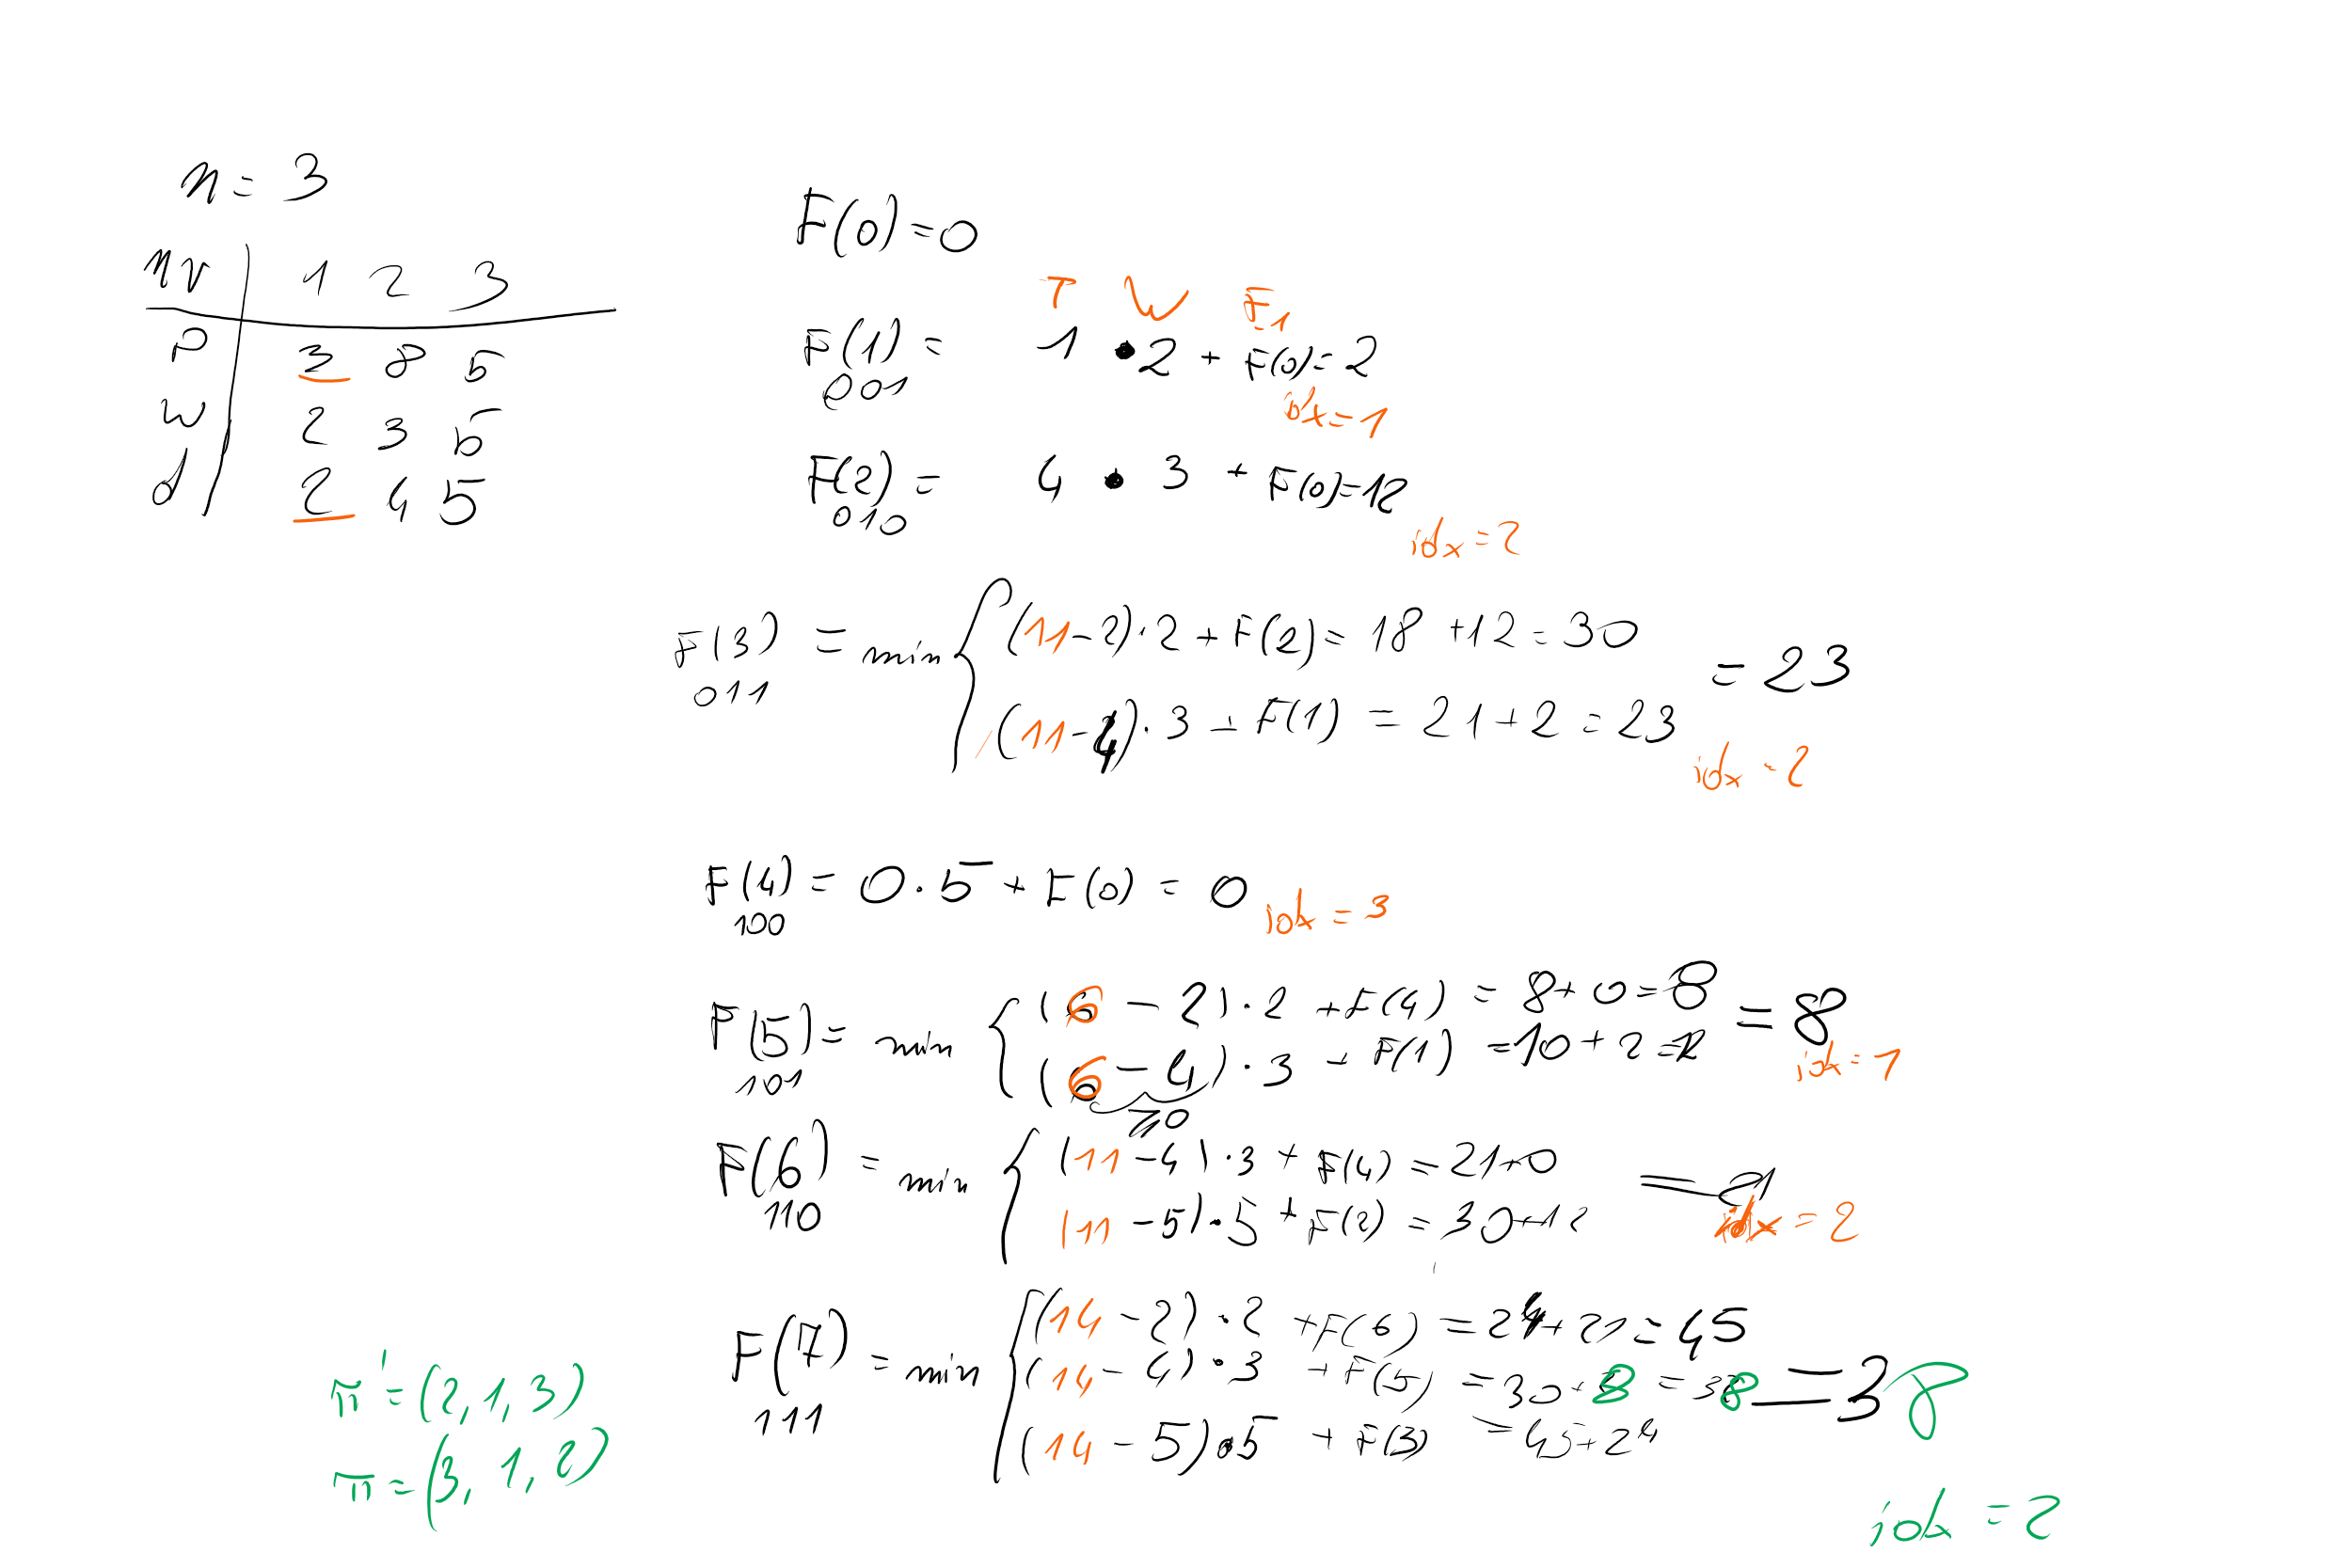 n = 3
nr 1 2 3
p 3 8 5
w 2 3 5
d 2 4 5
F(0) = 0
T W F_1
F(1) = 1 • 2 + F(0) = 2
001
idx = 1
F(2) = 4 • 3 + F(0) = 12
010
idx = 2
F(3) = min { (11-2)·2 + F(2) = 18 + 12 = 30
(11-4)·3 + F(1) = 21 + 2 = 23
= 23
011
idx = 2
F(4) = 0·5 + F(0) = 0
100
idx = 3
F(5) = min { (6 - 2)·2 + F(4) = 8 + 0 = 8
(6 - 4)·3 + F(1) = 10 + 2 = 12
= 8
101
idx = 1
F(6) = min { (11 - 4)·3 + F(4) = 21+0
(11 - 5)·5 + F(2) = 30+12
= 21
110
idx = 2
F(7) = min { (14 - 2)·2 + F(6) = 24 + 21 = 45
(14 - 4)·3 + F(5) = 30 + 8 = 38
(14 - 5)·5 + F(3) = 45 +
= 38
111
π' = (2, 1, 3)
π = (3, 1, 2)
idx = 2